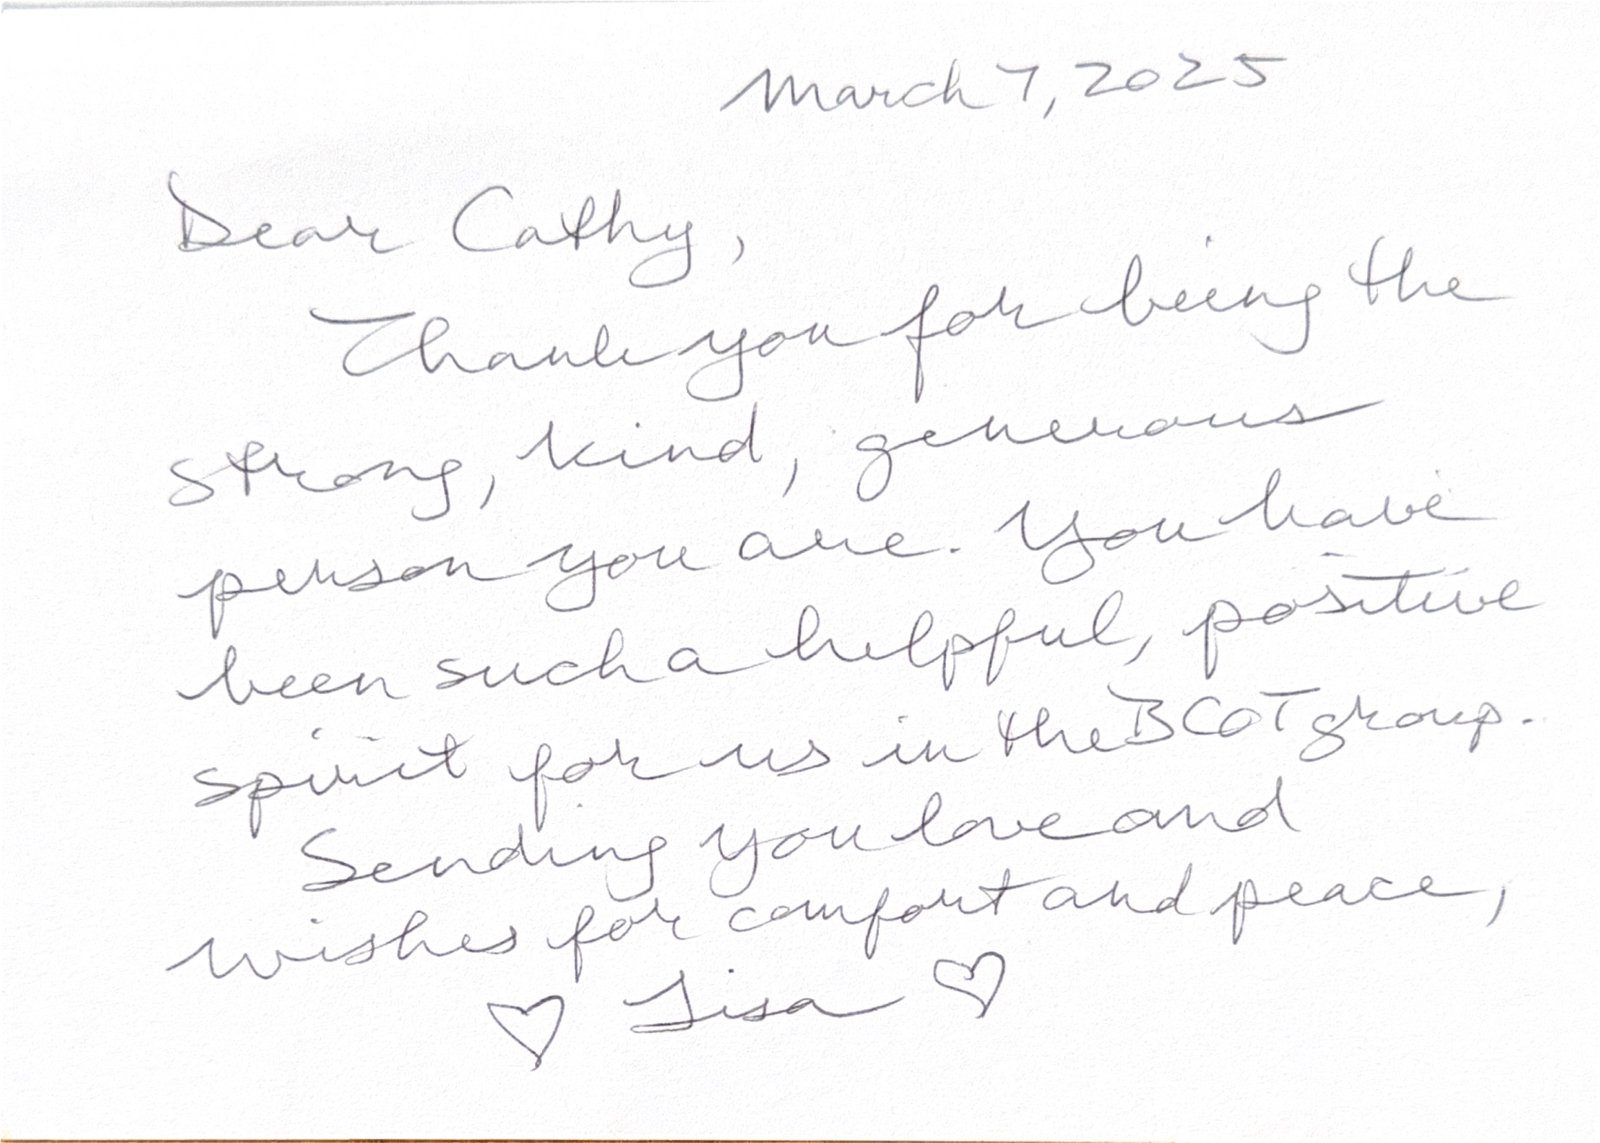 March 7, 2025
Dear Cathy,
Thank you for being the
strong, kind, generous
person you are. You have
been such a helpful, positive
spirit for us in the BCOT group.
Sending you love and
wishes for comfort and peace,
♡ Lisa ♡